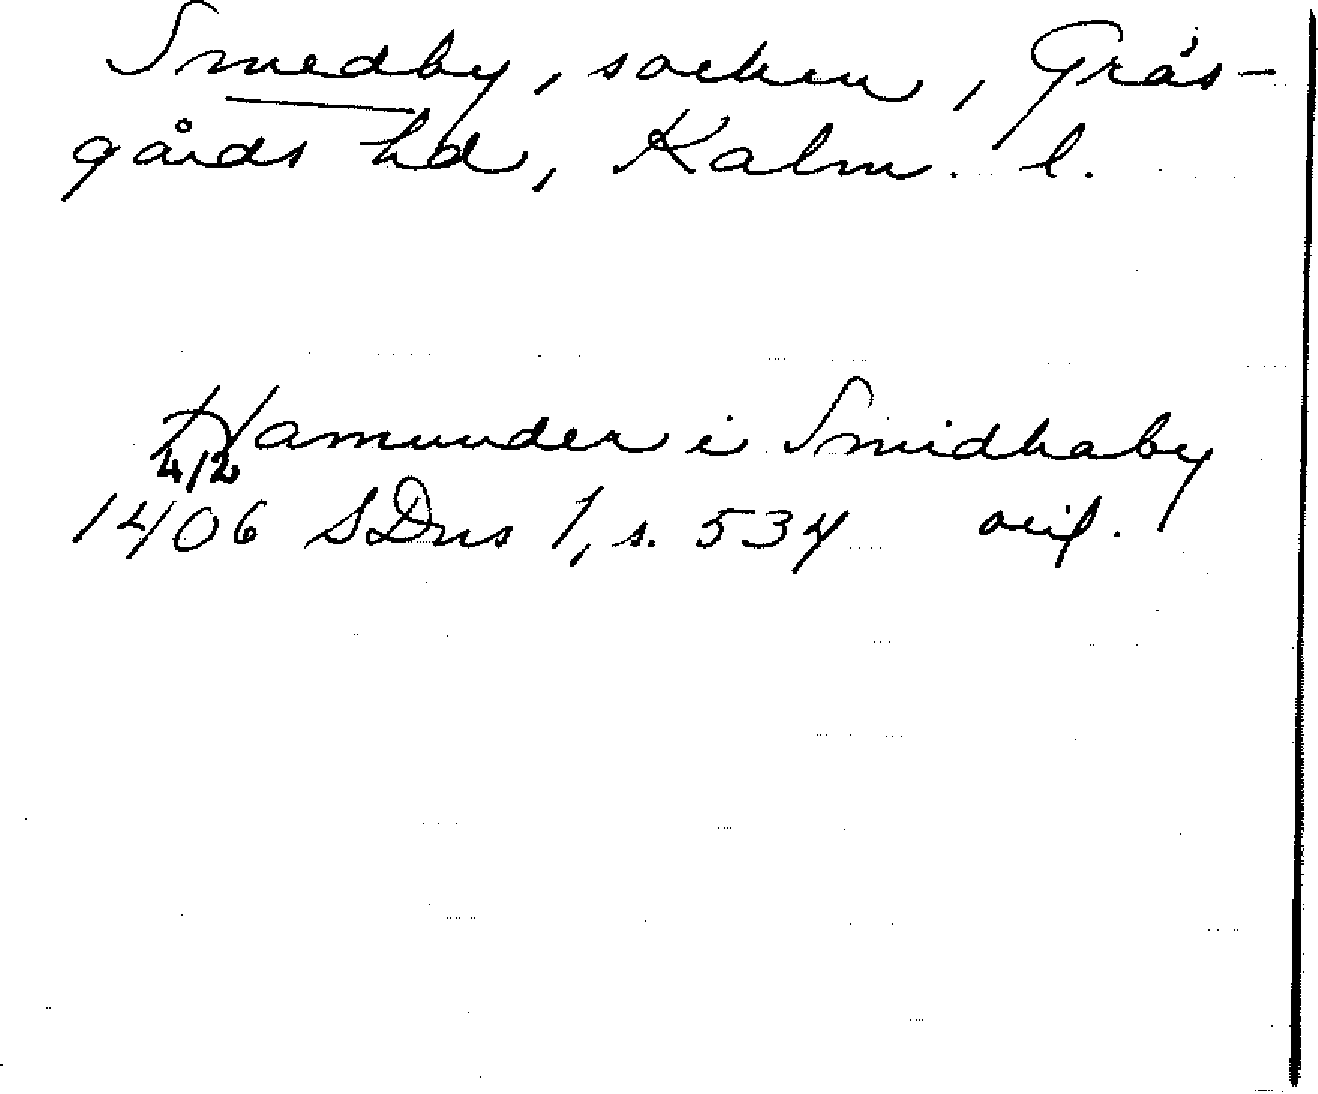 Smedby, socken, Gräs-
gårds hd, Kalm. l.
Hamunder i Smidhaby
4/2
1406 SDns 1, s. 534 orig.